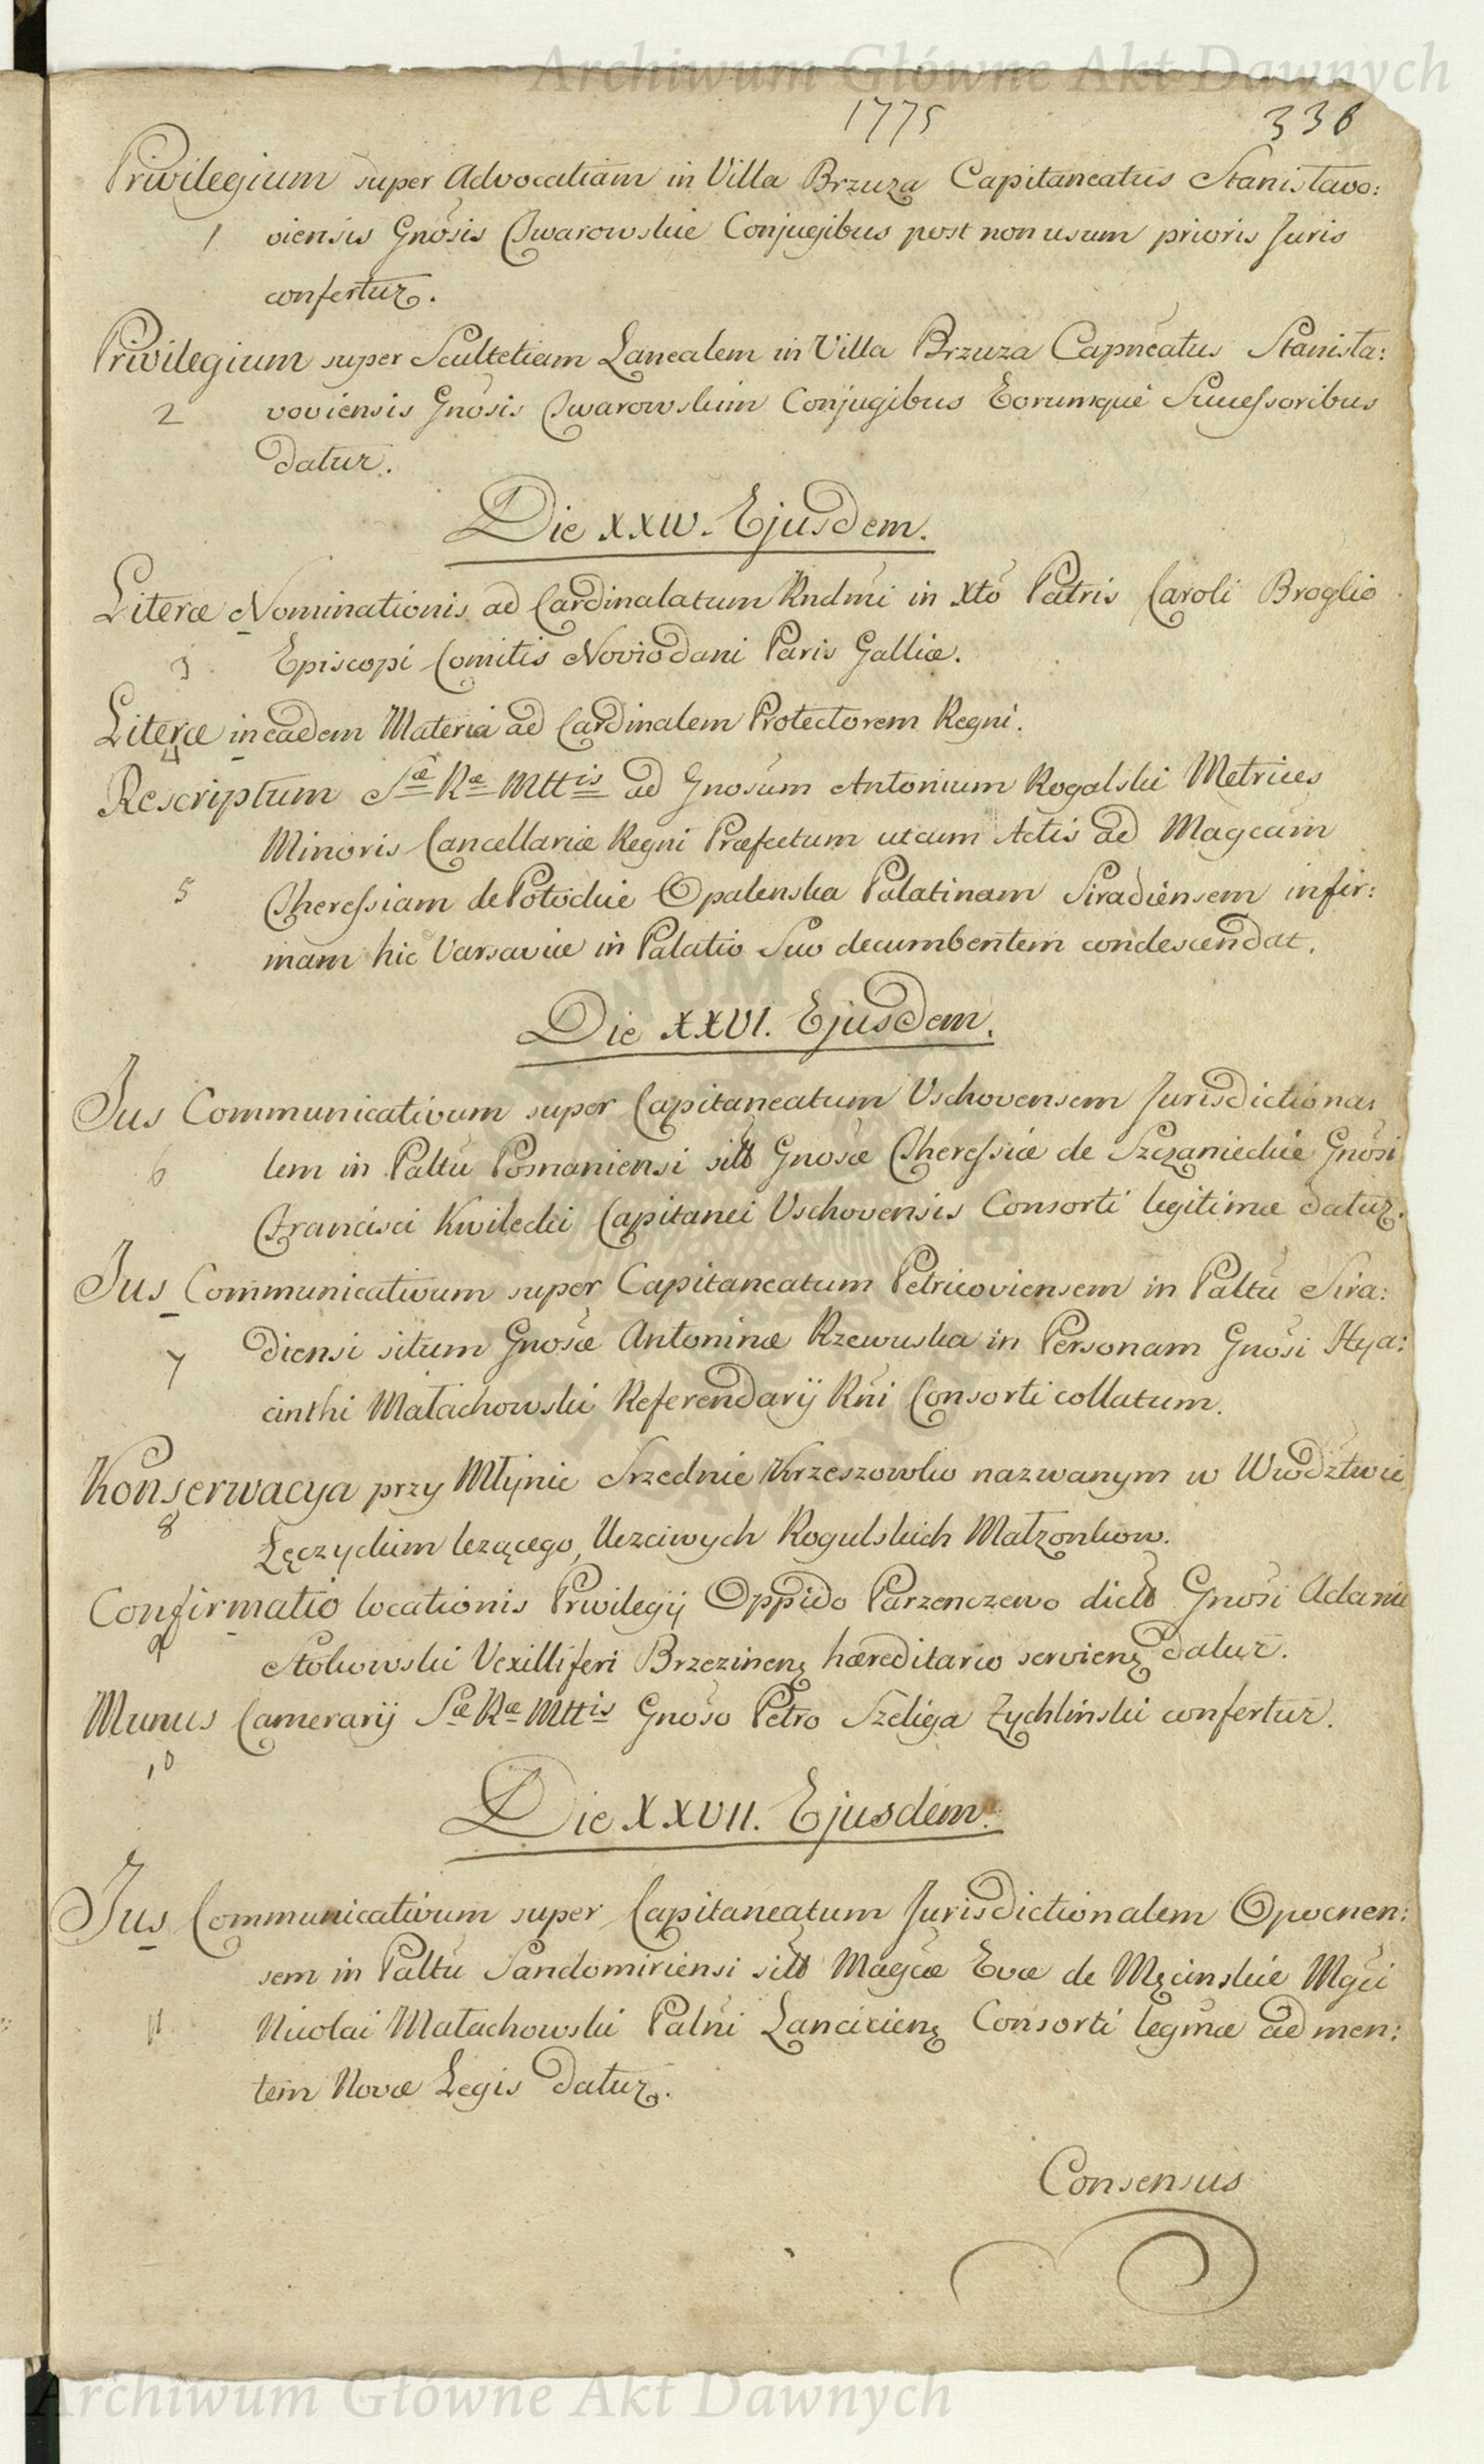 Archiwum Główne Akt Dawnych
1775
336
Privilegium super Advocatiam in Villa Brzuza Capitaneatus Stanislavo:
1 viensis Gnosis Twarowskie Conjugibus post non usum prioris Juris
confertur.
Privilegium super Scultetiam Lanealem in Villa Brzuza Capneatus Stanisla:
2 voviensis Gnosis Twarowskim Conjugibus Eorumque Successoribus
datur.
Die XXIV. Ejusdem.
Literæ Nominationis ad Cardinalatum Rndmi in Xto Patris Caroli Broglio
3 Episcopi Comitis Noviodani Paris Galliæ.
Literæ in eadem Materia ad Cardinalem Protectorem Regni.
4
Rescriptum Sæ Ræ Mttis ad Gnosum Antonium Rogalski Metrices
Minoris Cancellariæ Regni Præfectum ut cum Actis ad Magcam
5 Theressiam de Potockie Opalenska Palatinam Siradiensem infir:
mam hic Varsaviæ in Palatio Suo decumbentem condescendat.
Die XXVI. Ejusdem.
Jus Communicativum super Capitaneatum Vschovensem Jurisdictiona:
6 lem in Paltu Posnaniensi sitt Gnosæ Theressiæ de Szczanieckie Gnosi
Francisci Kwilecki Capitanei Vschovensis Consorti legitimæ datur.
Jus Communicativum super Capitaneatum Petricoviensem in Paltu Sira:
7 diensi situm Gnosæ Antoninæ Rzewuska in Personam Gnosi Hya:
cinthi Małachowski Referendarij Rni Consorti collatum.
Konserwacya przy Młynie Srzednie Krzeszowko nazwanym w Wwodztwie
8 Łęczyckim lezącego, Uczciwych Rogulskich Małzonkow.
Confirmatio locationis Privilegij Oppido Parzenczewo dictt Gnosi Adami
9 Stokowski Vexilliferi Brzezinens hæreditario serviens datur.
Munus Camerarij Sæ Ræ Mttis Gnoso Petro Szeliga Zychlinski confertur.
10
Die XXVII. Ejusdem.
Jus Communicativum super Capitaneatum Jurisdictionalem Opocnen:
sem in Paltu Sandomiriensi sitt Magcæ Evæ de Męcinskie Mgci
11 Nicolai Małachowski Palni Lanciciens Consorti legmæ ad men:
tem Novæ Legis datur.
Consensus
Archiwum Główne Akt Dawnych